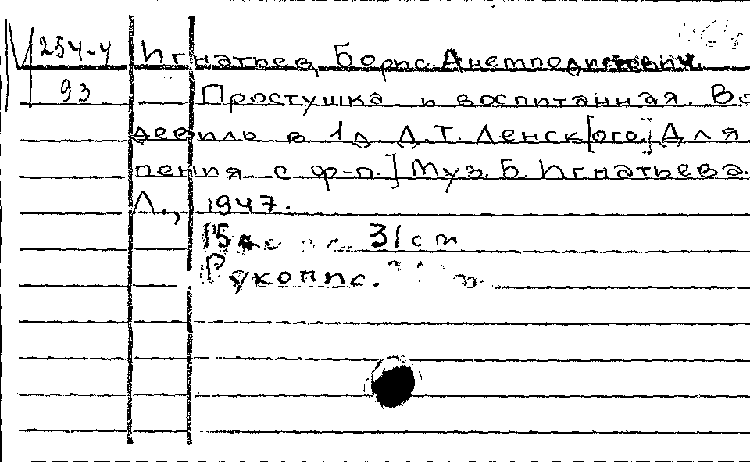 254-4 Игнатьев, Борис Анемподистович.
93 Простушка и воспитанная. Во
девиль в 1 д. Д.Т. Ленск[ого.] Для
пения с ф-п.] Муз. Б. Игнатьева.
Л., 1947.
15 31 см.
Рукопис.